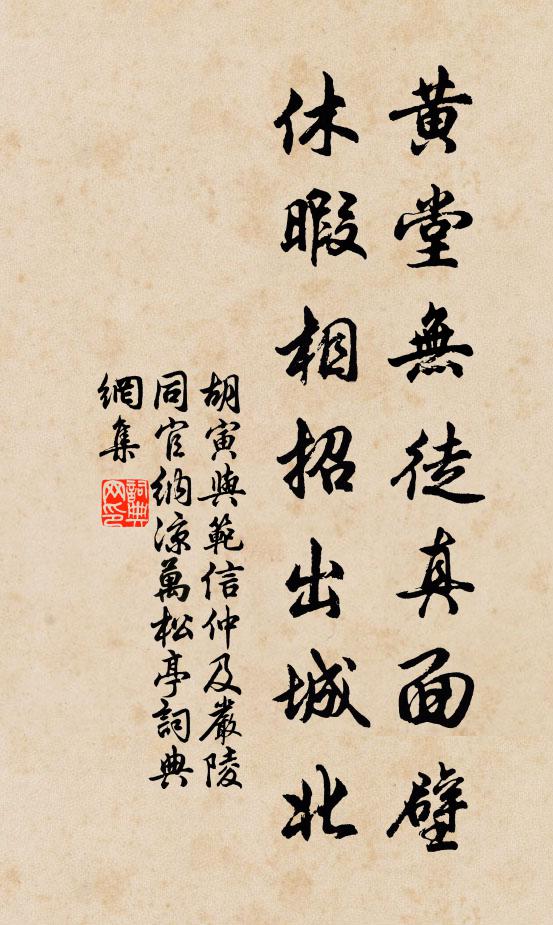 黃堂無徒真面壁
休暇相招出城北
胡寅與範信仲及嚴陵
同官納涼萬松亭詞典
網集
詞典
网印